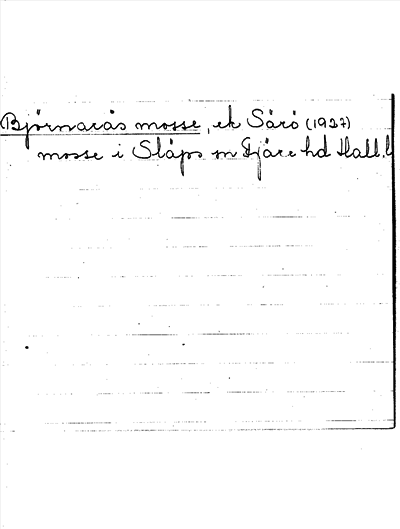 Björnarås mosse, ek Särö (1927)
mosse i Släps sn Fjäre hd Hall. l